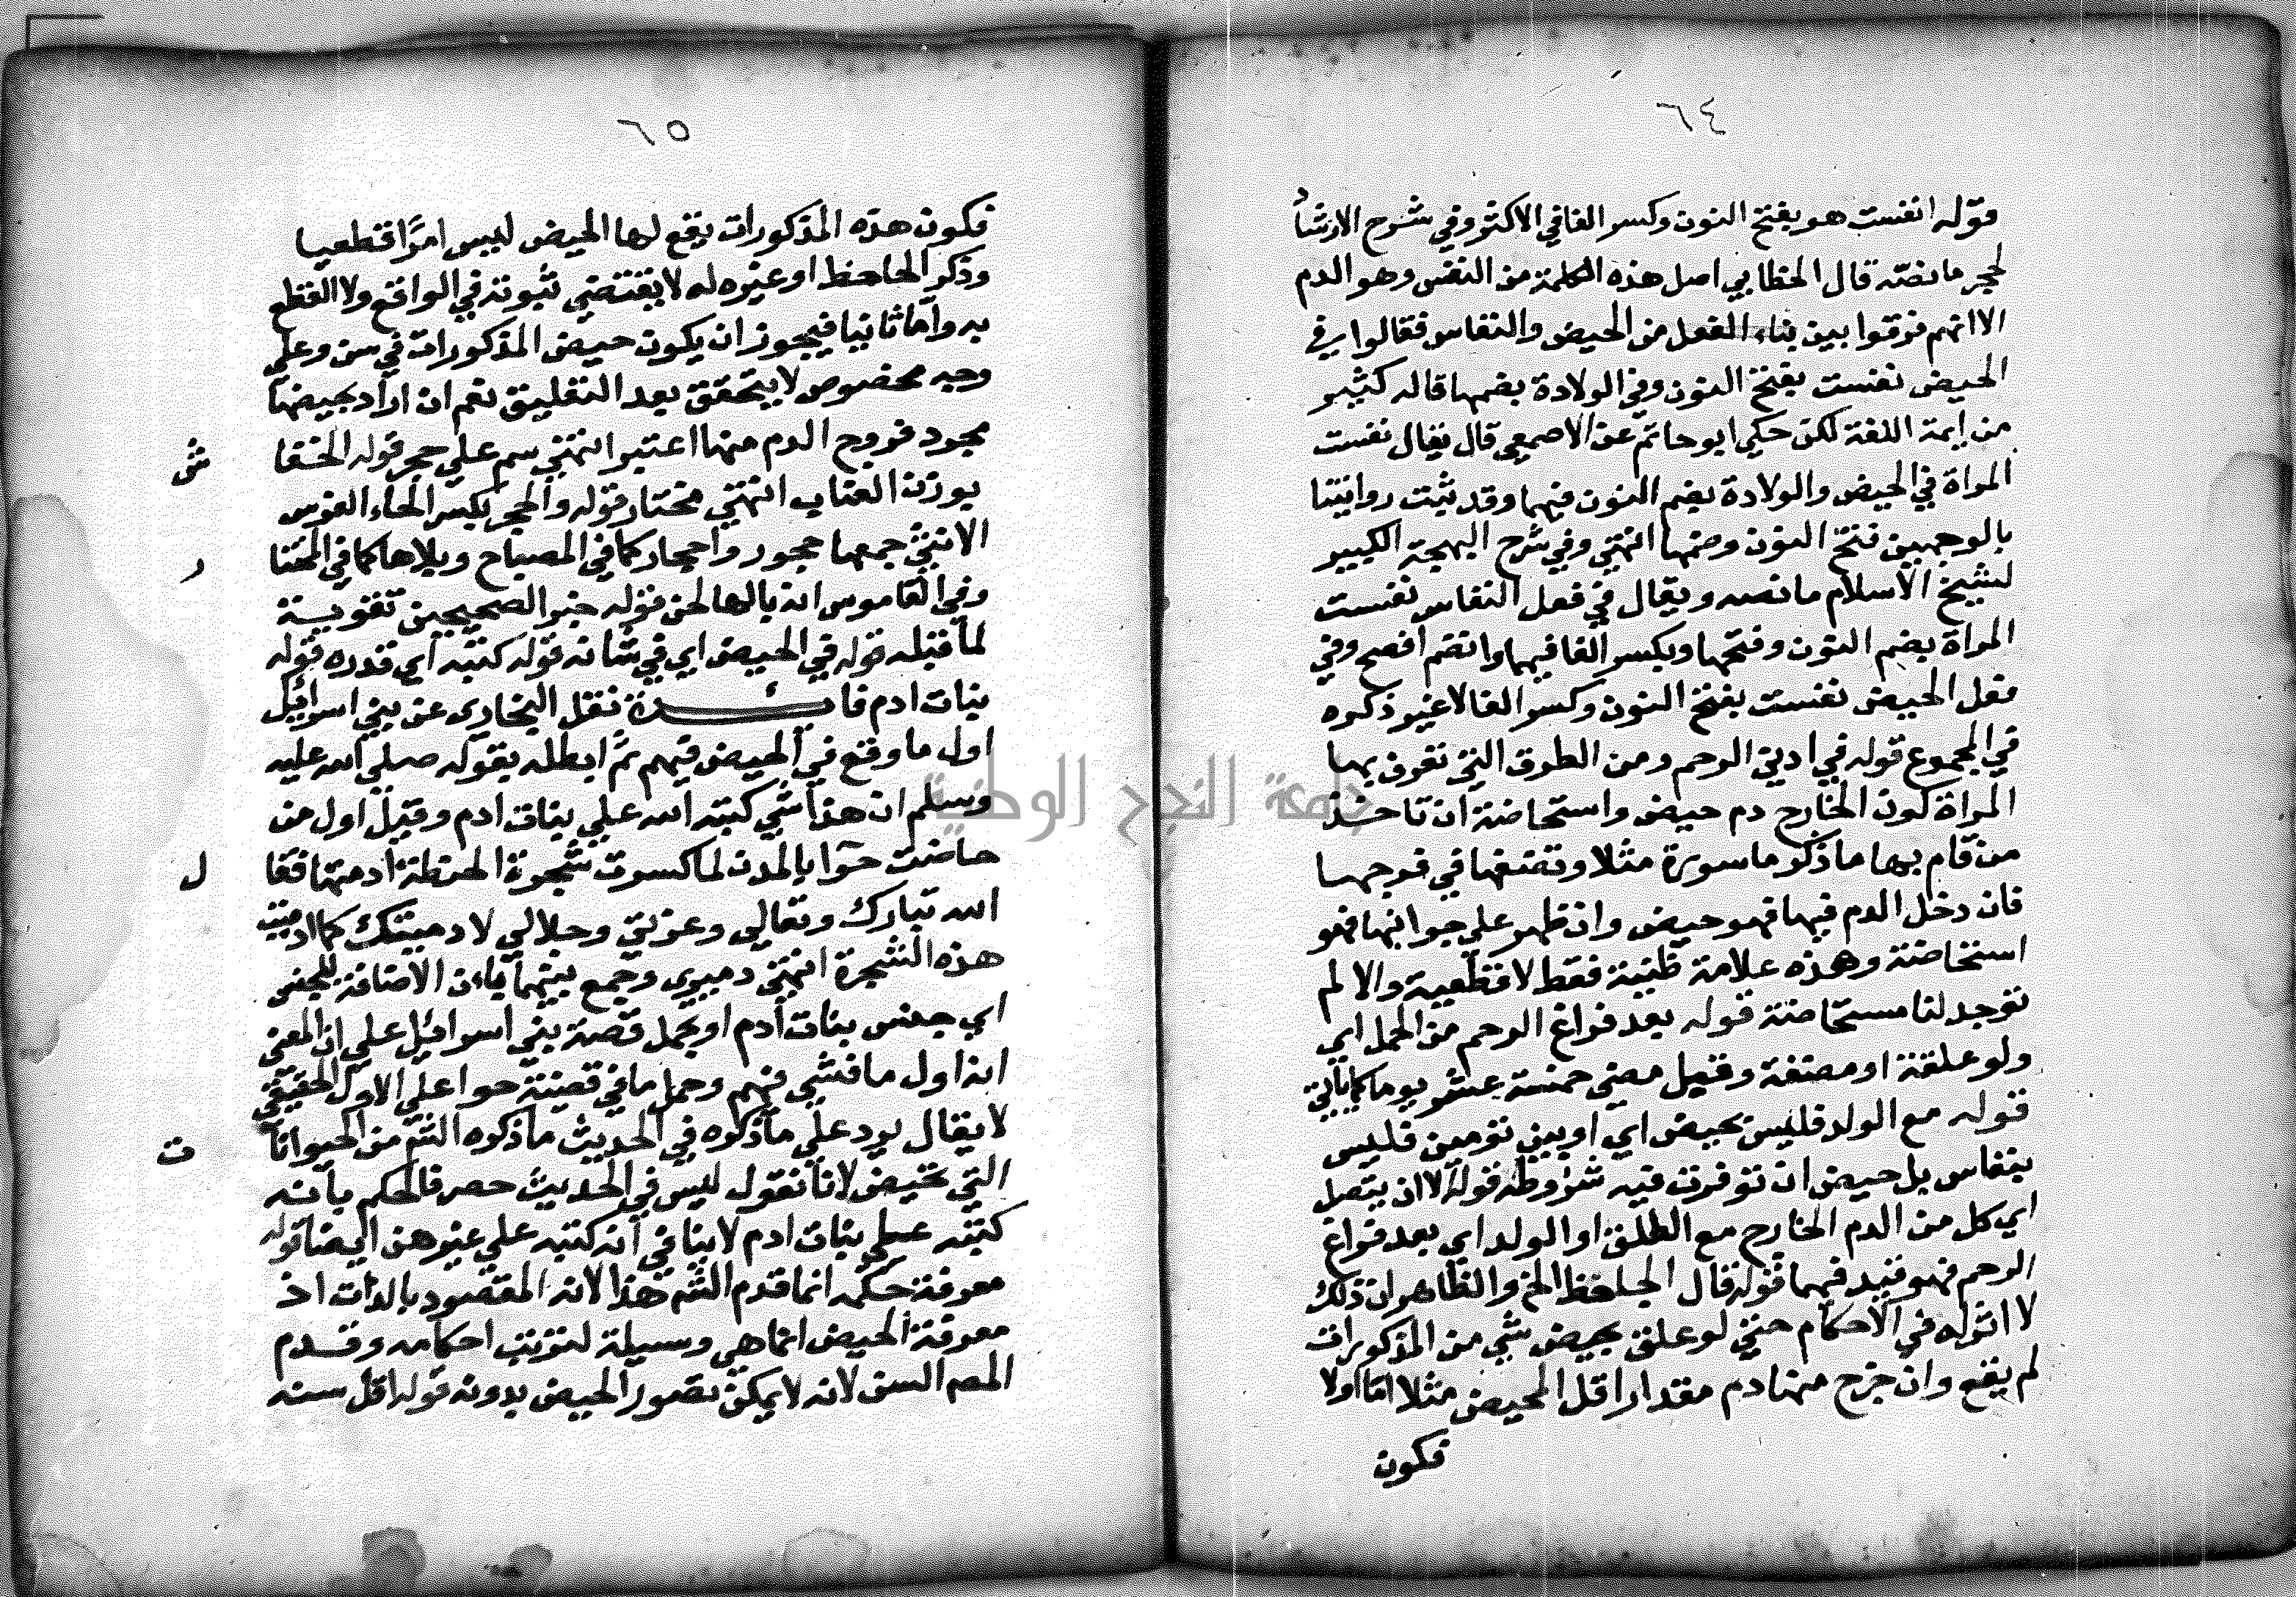 ٦٤
قوله انفست هو بفتح النون وكسر الفا في الاكثر وفي شرح الارشاد
لحجر ما نصه قال الخطابي اصل هذه الكلمة من النفس وهو الدم
الا انهم فرقوا بين بناء الفعل من الحيض والنفاس فقالوا في
الحيض نفست بفتح النون وفي الولادة بضمها قاله كثير
من ايمة اللغة لكن حكي ابو حاتم عن الاصمعي قال يقال نفست
المراة في الحيض والولادة بضم النون فيهما وقد ثبت روايتنا
بالوجهين فتح النون وضمها انتهي وفي شرح البهجة الكبير
لشيخ الاسلام ما نصه ويقال في فعل النفاس نفست
المراة بضم النون وفتحها وبكسر الفا فيهما والضم افصح وفي
فعل الحيض نفست بفتح النون وكسر الفا لا غير ذكره
في المجموع قوله في ادني الرحم ومن الطرق التي تعرف بها
المراة كون الخارج دم حيض واستحاضة ان تاخذ
من قام بها ما ذكر ماسورة مثلا وتضعها في فرجها
فان دخل الدم فيها فهو حيض وان ظهر علي جوانبها فهو
استحاضة وهذه علامة ظنية فقط لا قطعية والا لم
توجد لنا مستحاضة قوله بعد فراغ الرحم من الحمل اي
ولو علقة او مضغة وقبل مضي خمسة عشر يوما كما ياتي
قوله مع الولد فليس بحيض اي او بين توءمين فليس
بنفاس بل حيض ان توفرت فيه شروطه قوله الا ان يتصل
اي كل من الدم الخارج مع الطلق او الولد اي بعد فراغ
الرحم فهو قيد فيهما قوله قال الجاحظ الخ والظاهر ان ذلك
لا اثر له في الاحكام حتي لو علق بحيض شي من المذكورات
لم يقع وان خرج منها دم مقدار اقل الحيض مثلا اما اولا
فكون
٦٥
فكون هذه المذكورات يقع لها الحيض ليس امرا قطعيا
وذكر الجاحظ او غيره له لا يقتضي ثبوته في الواقع ولا القطع
به واما ثانيا فيجوز ان يكون حيض المذكورات في سن وعلي
وجه مخصوص لا يتحقق بعد التعليق نعم ان اراد بحيضها
مجرد خروج الدم منها اعتبر انتهي سم علي حجر قوله الخفا
ش
بوزن العتاب انتهي مختار قوله والحجر بكسر الحاء الفرس
الانثي جمعها حجور واحجار كما في المصباح وبلاها كما في المختا
ر
وفي القاموس انه بالها لحن قوله خبر الصحيحين تقوية
لما قبله قوله في الحيض اي في شانه قوله كتبه اي قدره قوله
بنات ادم فائدة نقل البخاري عن بني اسرائيل
اول ما وقع في الحيض فيهم ثم ابطله بقوله صلي الله عليه
وسلم ان هذا شي كتبه الله علي بنات ادم وقيل اول من
حاضت حوا بالمد لما كسرت شجرة الحنطة ادمتها فقا
ل
الله تبارك وتعالي وعزتي وجلالي لادمينك كما ادميت
هذه الشجرة انتهي دميري وجمع بينهما بان الاضافة للجنس
اي جنس بنات ادم او يحمل قصة بني اسرائيل علي ان المعني
انه اول ما فشي فيهم وحمل ما في قصة حوا علي الاول الحقيقي
لا يقال يرد علي ما ذكره في الحديث ما ذكره الش من الحيوانا
ت
التي تحيض لانا نقول ليس في الحديث حصر فالحكم بانه
كتبه علي بنات ادم لا ينافي انه كتبه علي غيرهن ايضا قوله
معرفة حكمه انما قدم الش هذا لانه المقصود بالذات اذ
معرفة الحيض انما هي وسيلة لترتب احكامه وقدم
المص السن لانه لا يمكن تصور الحيض بدونه قوله اقل سنه
جامعة النجاح الوطنية